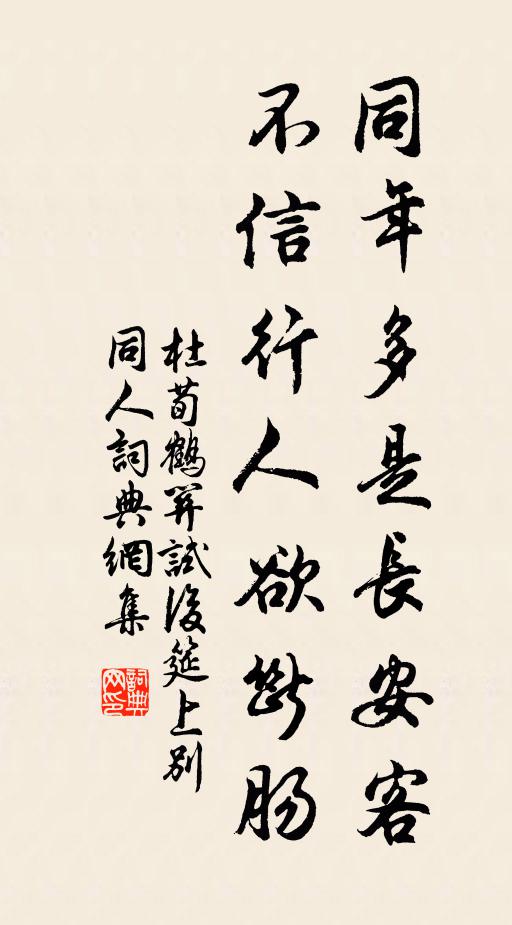 同年多是長安客
不信行人欲斷腸
杜荀鶴關試後筵上別
同人詞典網集
詞典網印